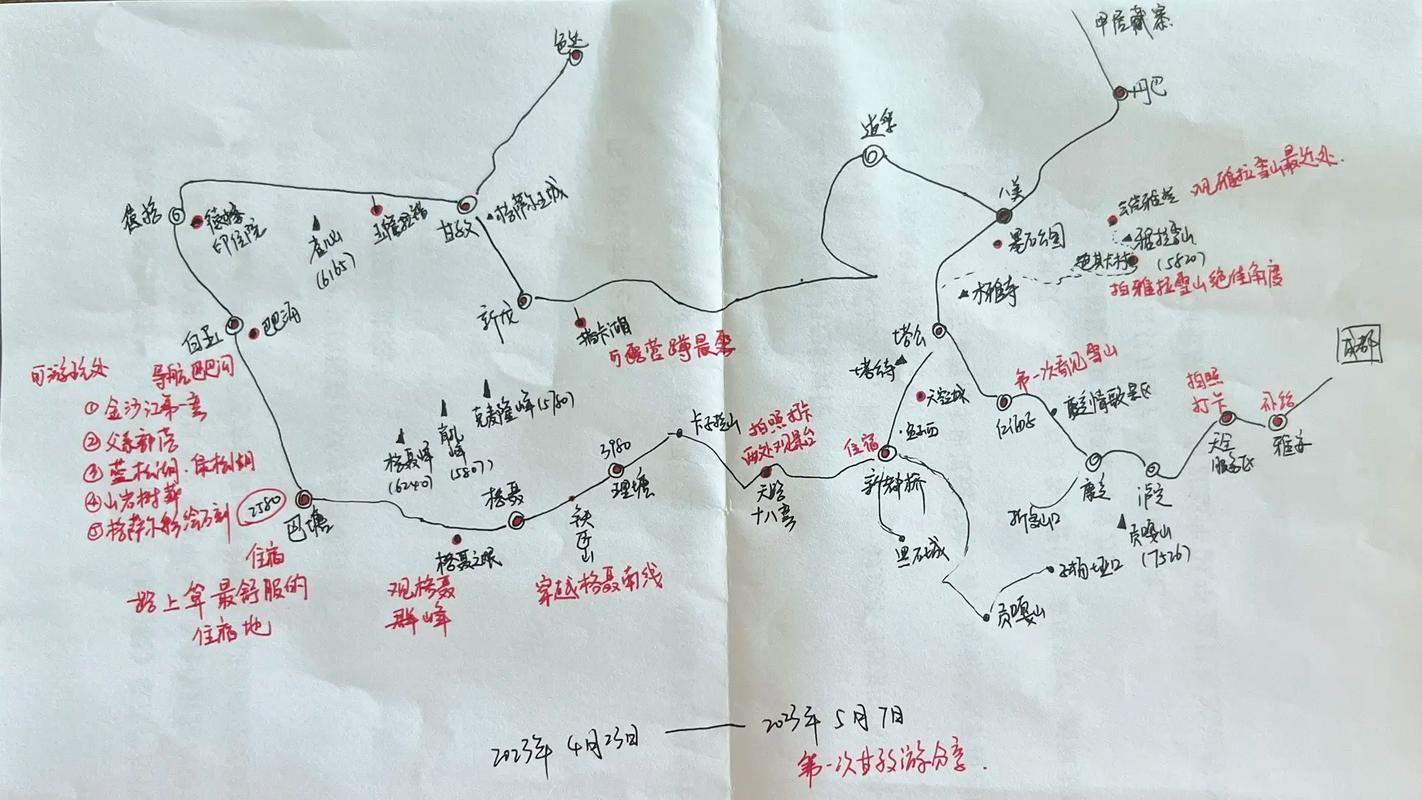 甲居藏寨
丹巴
色达
道孚
八美
观雅拉雪山最近处.
雅拉雪山
(5820)
墨石公园
拍雅拉雪山绝佳角度
木雅寺
德格
德格
印经院
雀儿山
(6165)
玉隆拉措
甘孜
格萨尔王城
新龙
措卡湖
可露营蹲晨雾
白玉
巴洞
可游玩处
导航巴巴沟
① 金沙江第一弯
② 父系部落
④ 山岩树葬
⑤ 格萨尔彩绘石刻
2580
巴塘
住宿
路上算最舒服的
住宿地
格聂峰
(6240)
肖扎
峰
(5807)
克麦隆峰(5780)
格聂
格聂之眼
观格聂
群峰
铁匠山
穿越格聂南线
3980
理塘
卡子拉山
拍照打卡
两处观景台
天路
十八弯
住宿
新都桥
鱼子西
天空城
塔公
塔公寺
黑石城
贡嘎山
子梅垭口
第一次看见雪山
康定情歌景区
康定
折多山口
泸定
贡嘎山
(7526)
拍照
打卡
天全
服务区
补给
雅安
成都
2023年 4月23日 — 2023年 5月7日
第一次甘孜游分享.